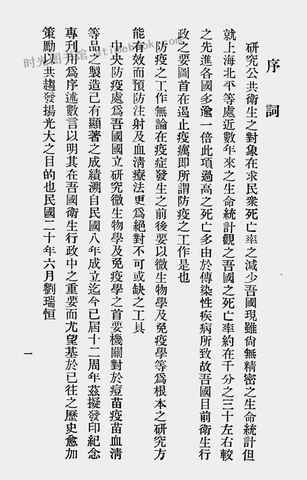 序詞
研究公共衛生之對象在求民衆死亡率之減少吾國現雖尙無精密之生命統計但
就上海北平等處近數年來之生命統計觀之吾國之死亡率約在千分之三十左右較
之先進各國多逾一倍此項過高之死亡多由於傳染性疾病所致故吾國目前衛生行
政之要圖首在遏止疫癘卽所謂防疫之工作是也
防疫之工作無論在疫症發生之前後要以微生物學及免疫學等爲根本之研究方
能有效而預防注射及血淸療法更爲絕對不可或缺之工具
中央防疫處爲吾國國立研究微生物學及免疫學之首要機關對於痘苗疫苗血淸
等品之製造已有顯著之成績溯自民國八年成立迄今已屆十二周年茲擬發印紀念
專刊用爲序述數言以明其在吾國衛生行政中之重要而尤望基於已往之歷史愈加
策勵以共趨發揚光大之目的也民國二十年六月劉瑞恒
一